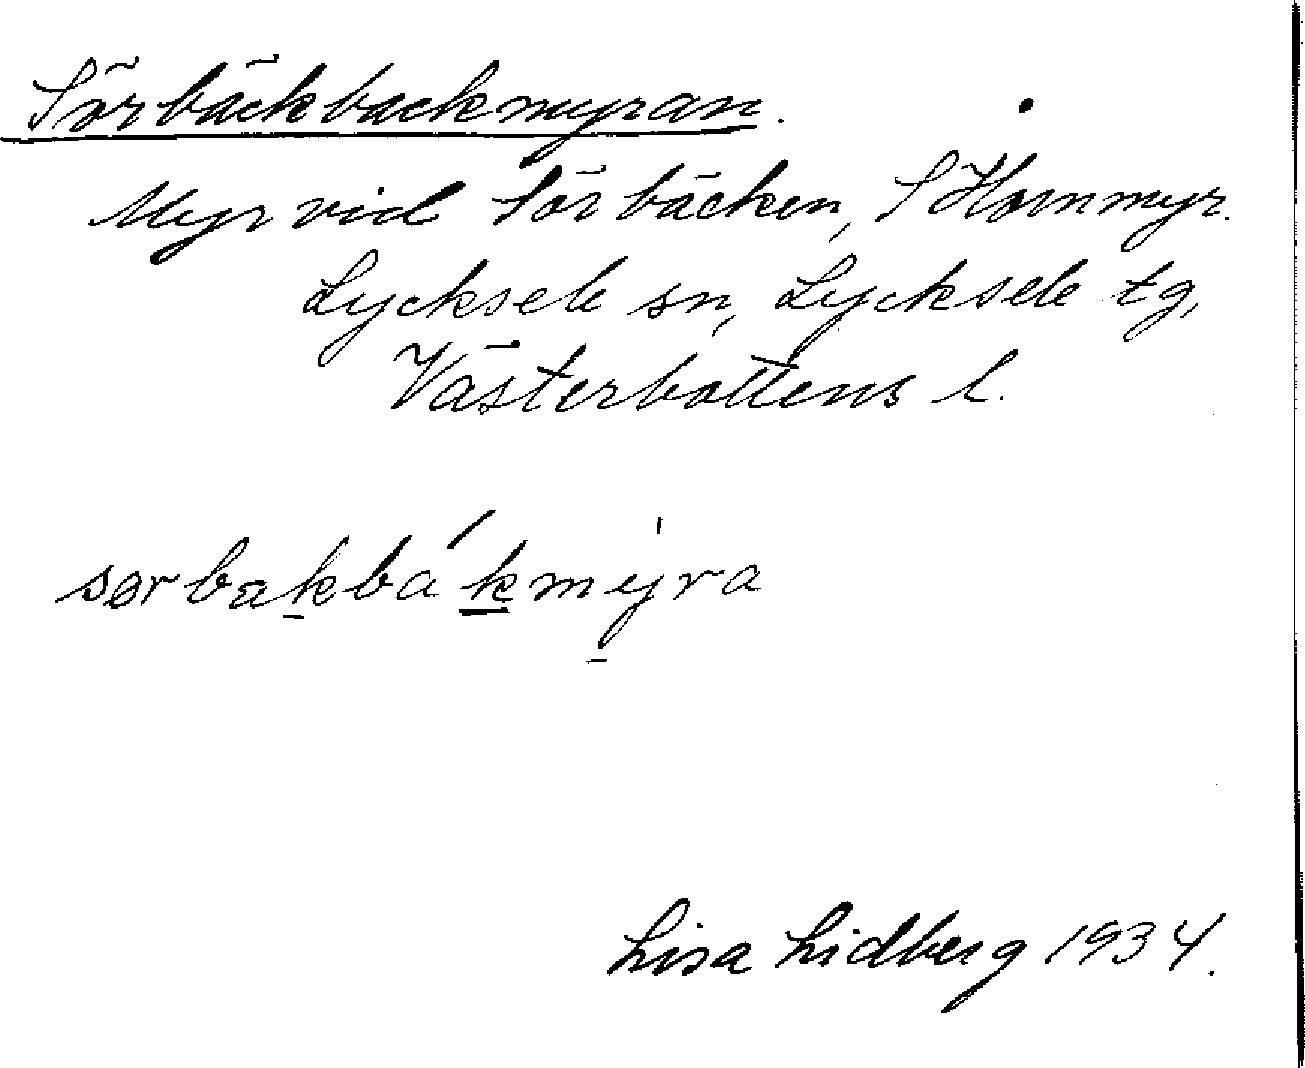 Sörbäckbackmyran.
Myr vid Sörbäcken, S Hornmyr.
Lycksele sn, Lycksele tg,
Västerbottens l.
sørbakbákmyra
Lisa Lidberg 1934.